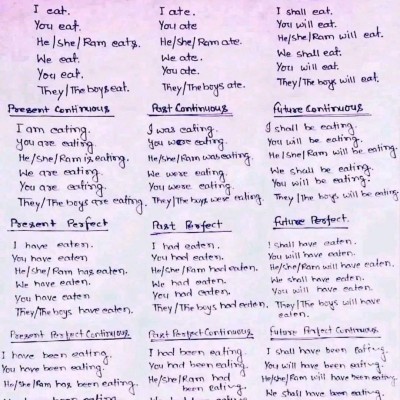 I eat.
You eat.
He/She/Ram eats.
We eat.
You eat.
They/The boys eat.
I ate.
You ate
He/She/Ram ate.
We ate.
You ate.
They/The boys ate.
I shall eat.
You will eat.
He/She/Ram will eat.
We shall eat.
You will eat.
They/The boys will eat.
Present Continuous
I am eating.
You are eating.
He/She/Ram is eating.
We are eating.
You are eating.
They/The boys are eating.
Past Continuous
I was eating.
You were eating.
He/She/Ram was eating.
We were eating.
You were eating.
They/The boys were eating.
Future Continuous
I shall be eating.
You will be eating.
He/She/Ram will be eating.
We shall be eating.
You will be eating.
They/The boys will be eating.
Present Perfect
I have eaten.
You have eaten
He/She/Ram has eaten.
We have eaten.
You have eaten
They/The boys have eaten.
Past Perfect
I had eaten.
You had eaten.
He/She/Ram had eaten.
We had eaten.
You had eaten.
They/The boys had eaten.
Future Perfect.
I shall have eaten.
You will have eaten.
He/She/Ram will have eaten.
We shall have eaten.
You will have eaten.
They/The boys will have
eaten.
Present Perfect Continuous
I have been eating.
You have been eating.
He/She/Ram has been eating.
have been eating
Past Perfect Continuous
I had been eating.
You had been eating.
He/She/Ram had
been eating.
Future Perfect Continuous
I shall have been eating.
You will have been eating.
He/She/Ram will have been eating.
We shall have been eating.